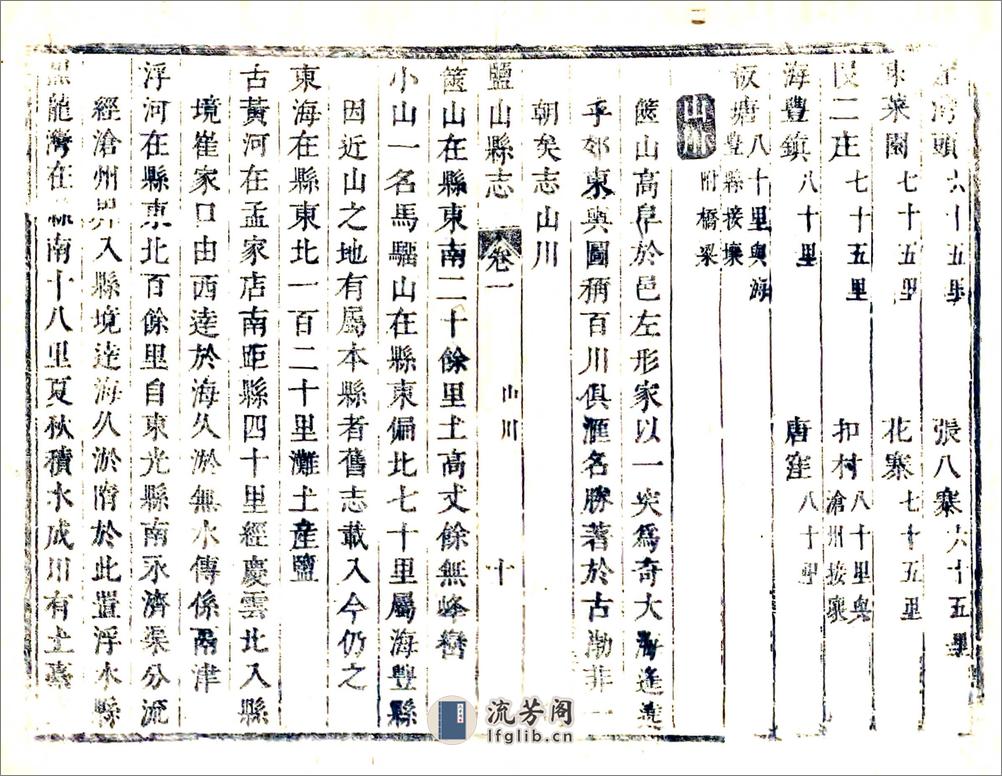 灣頭六十五里 張八寨六十五里
菜園七十五里 花寨七十五里
二庄七十五里 扣村八十里與滄州接壤
海豐鎮八十里 唐窪八十里
板塘八十里與海豐縣接壤
山川 附橋梁
篋山高阜於邑左形家以一突爲奇大海逶
乎郊東輿圖稱百川俱滙名勝著於古渤非一
朝矣志山川
鹽山縣志 卷一 山川 十
篋山在縣東南二十餘里土高丈餘無峰巒
小山一名馬騮山在縣東偏北七十里屬海豐縣
因近山之地有屬本縣者舊志載入今仍之
東海在縣東北一百二十里灘土產鹽
古黃河在孟家店南距縣四十里經慶雲北入縣
境崔家口由西逹於海久淤無水傳係鬲津
浮河在縣東北百餘里自東光縣南永濟渠分流
經滄州界入縣境逹海久淤隋於此置浮水縣
黑龍灣在縣南十八里夏秋積水成川有土臺
流芳阁
lfglib.cn